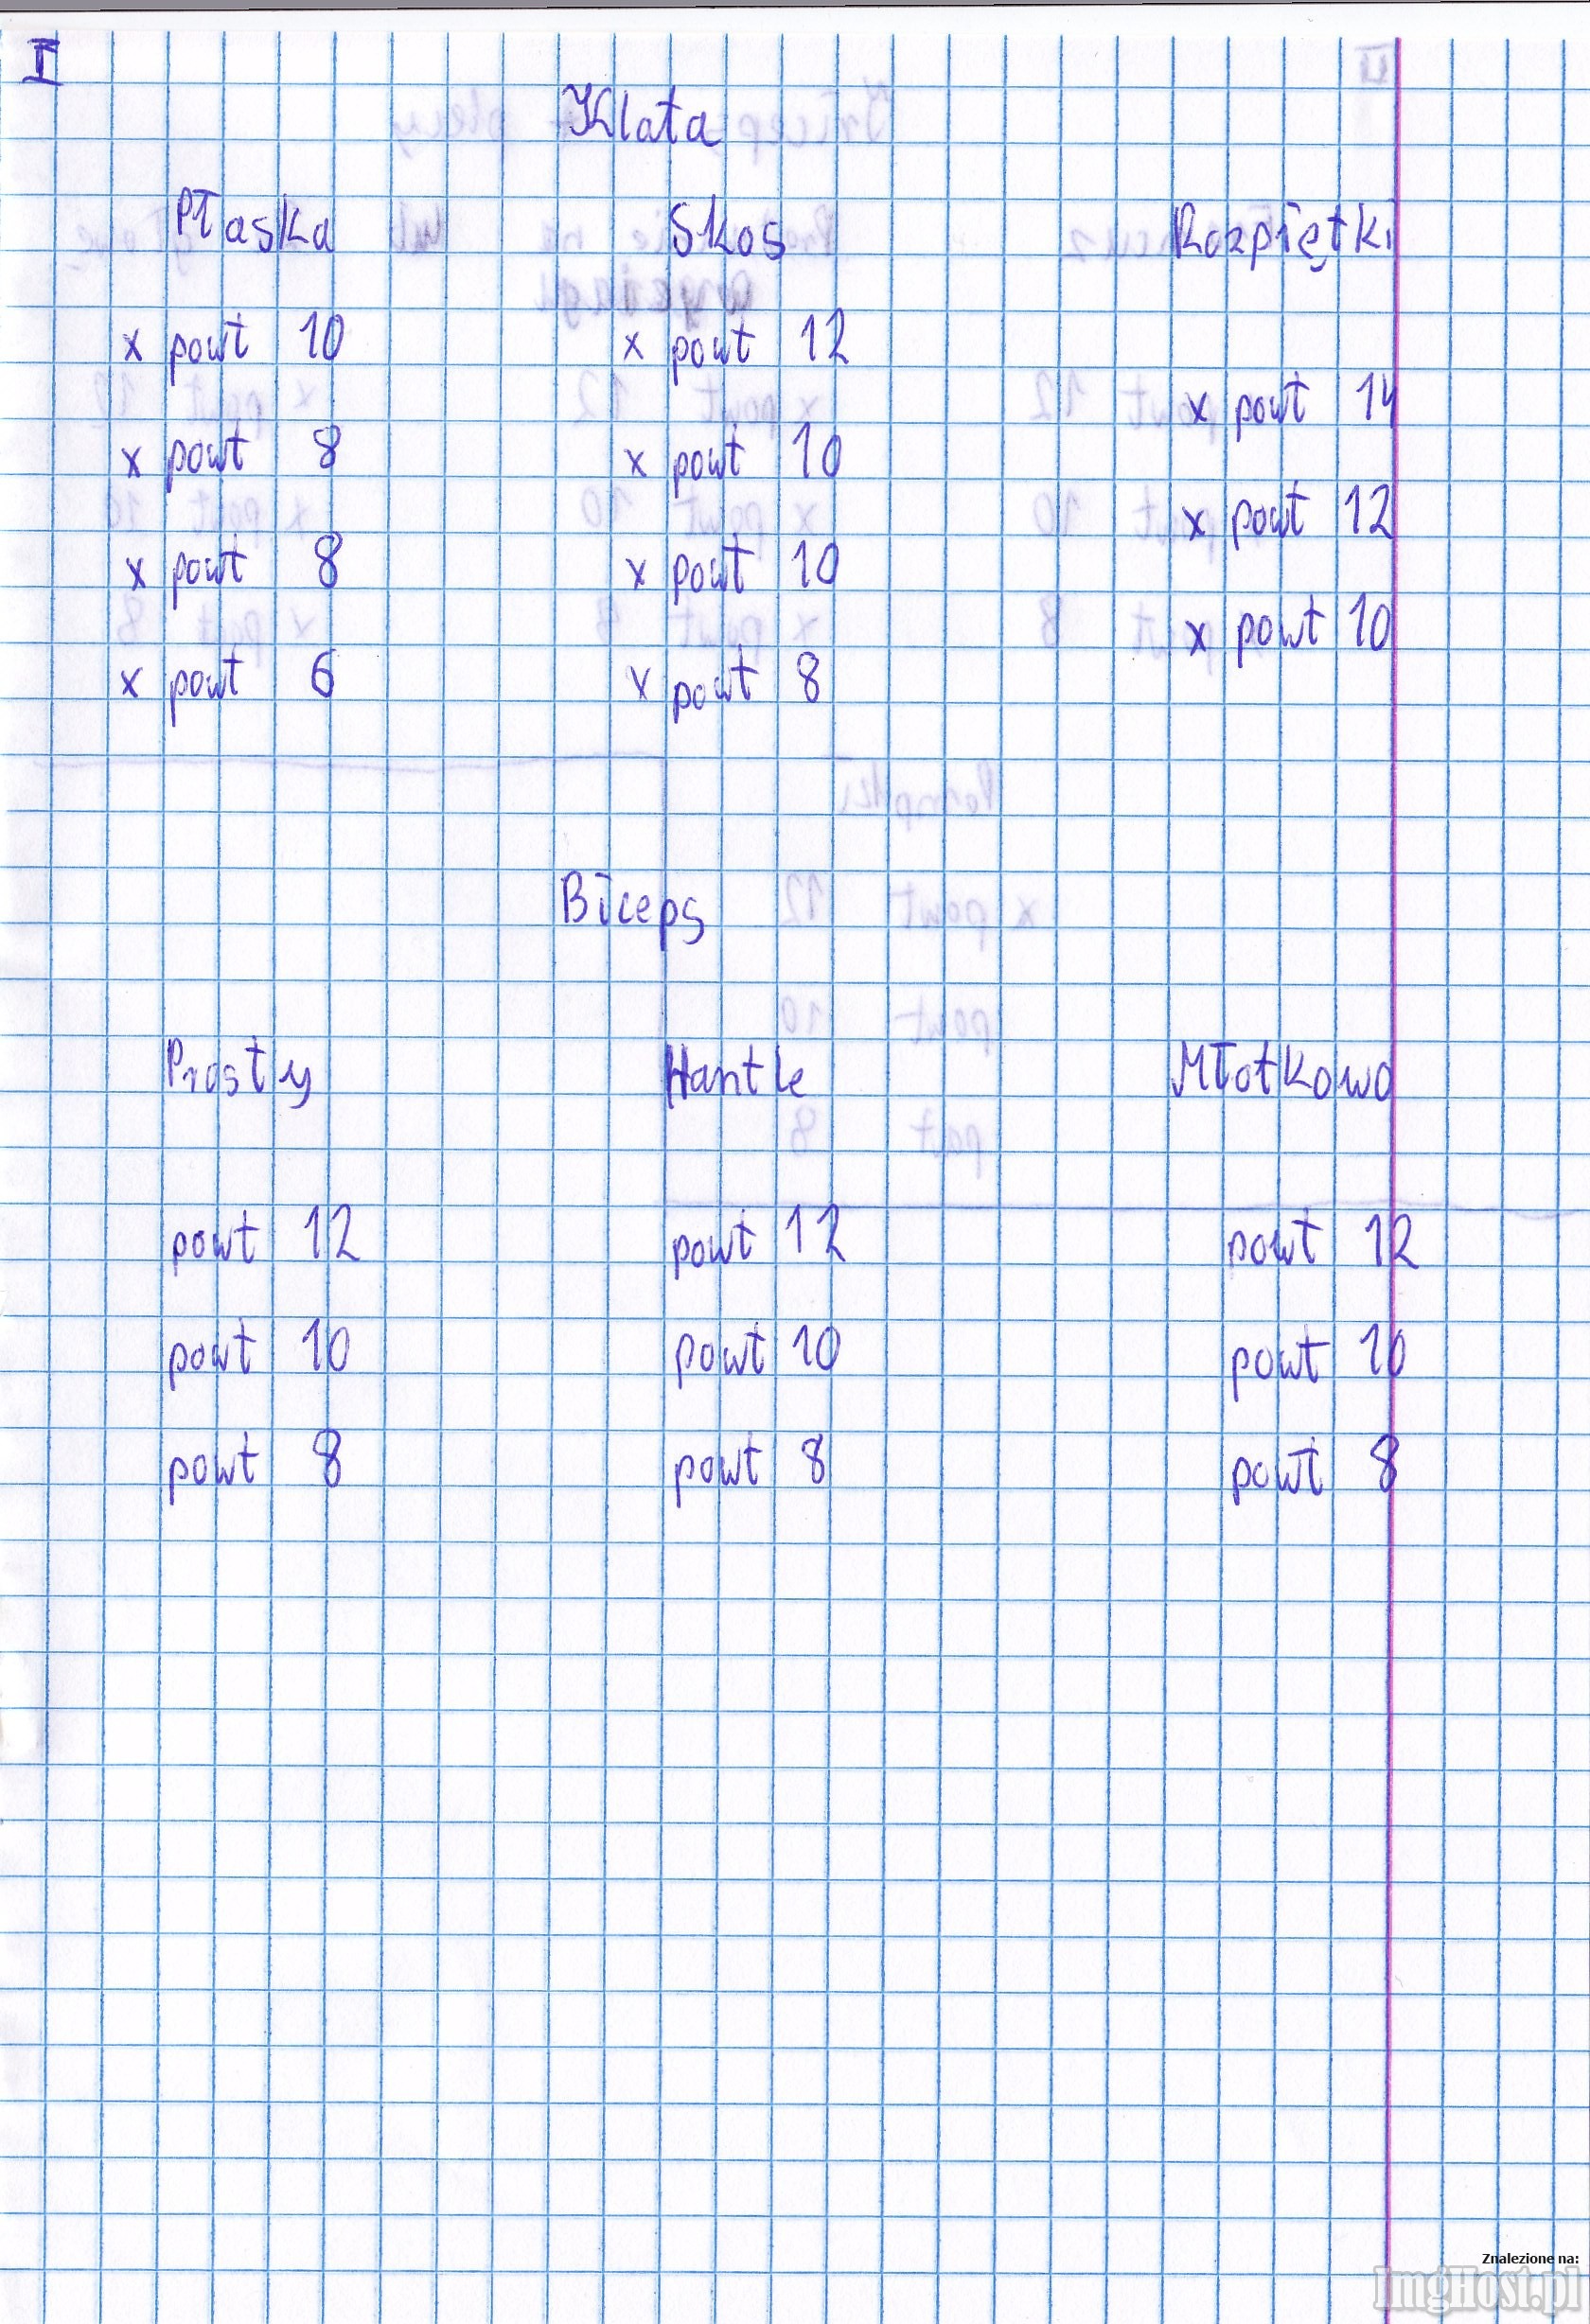 I
Klata
Płaska Skos Rozpiętki
x powt 10 x powt 12
x powt 14
x powt 8 x powt 10
x powt 12
x powt 8 x powt 10
x powt 10
x powt 6 x powt 8
Biceps
Prosty Hantle Młotkowo
powt 12 powt 12 powt 12
powt 10 powt 10 powt 10
powt 8 powt 8 powt 8
Znalezione na:
ImgHost.pl